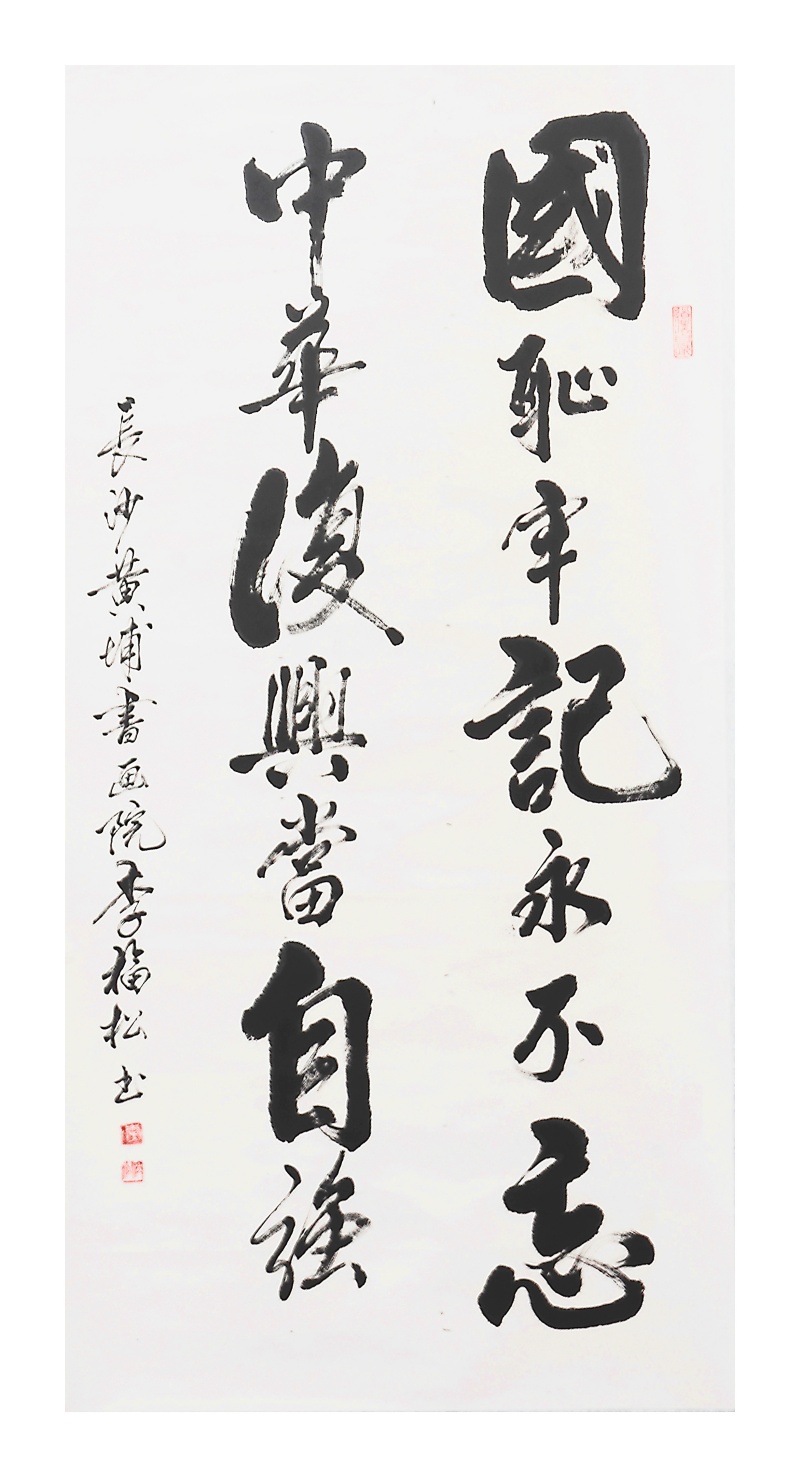 國恥牢記永不忘
中華復興當自強
長沙黄埔書画院李福松书